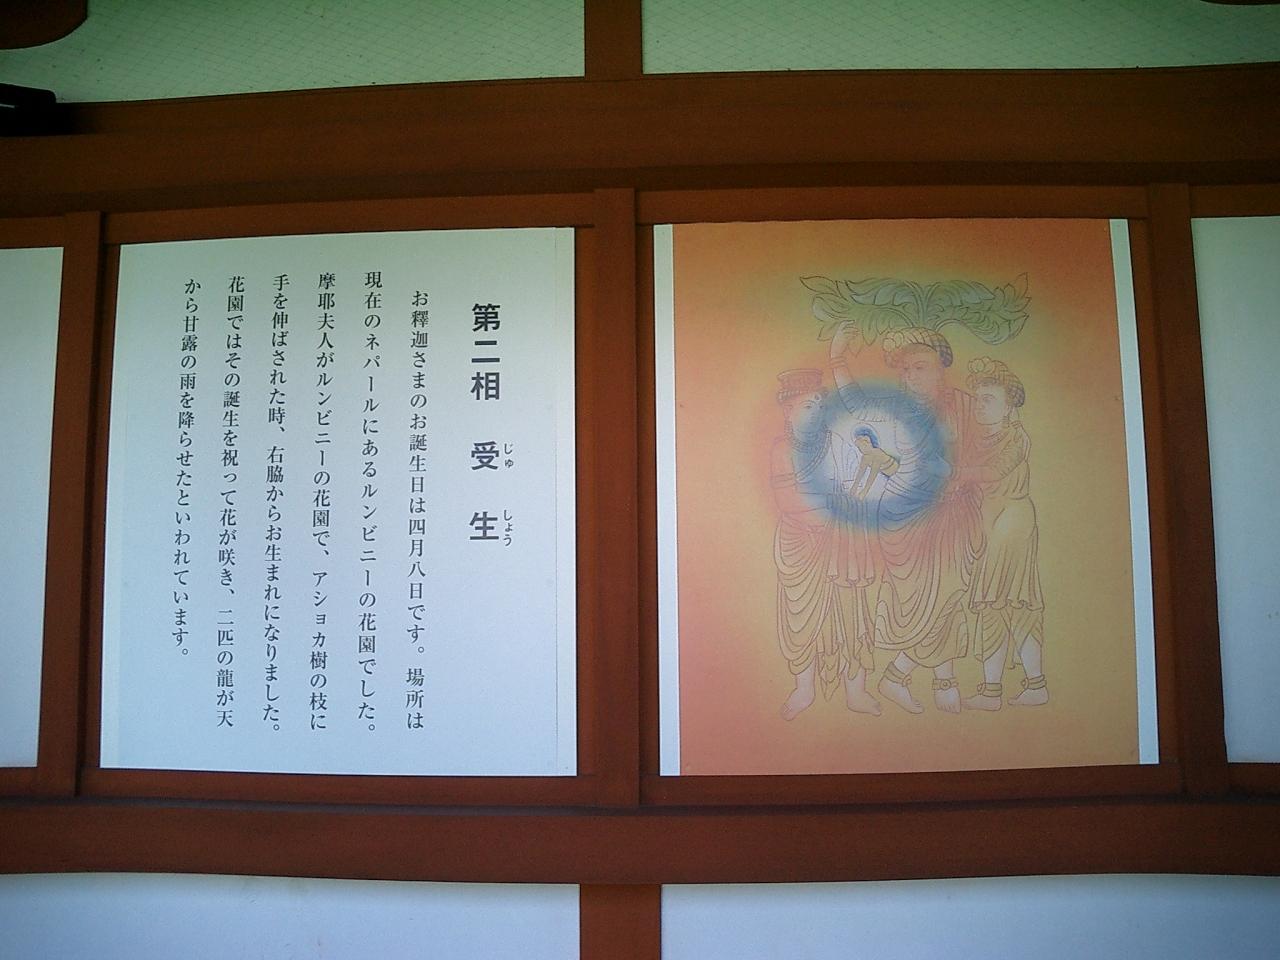 第二相　受　生
じゅ
しょう
お釋迦さまのお誕生日は四月八日です。場所は
現在のネパールにあるルンビニーの花園でした。
摩耶夫人がルンビニーの花園で、アショカ樹の枝に
手を伸ばされた時、右脇からお生まれになりました。
花園ではその誕生を祝って花が咲き、二匹の龍が天
から甘露の雨を降らせたといわれています。